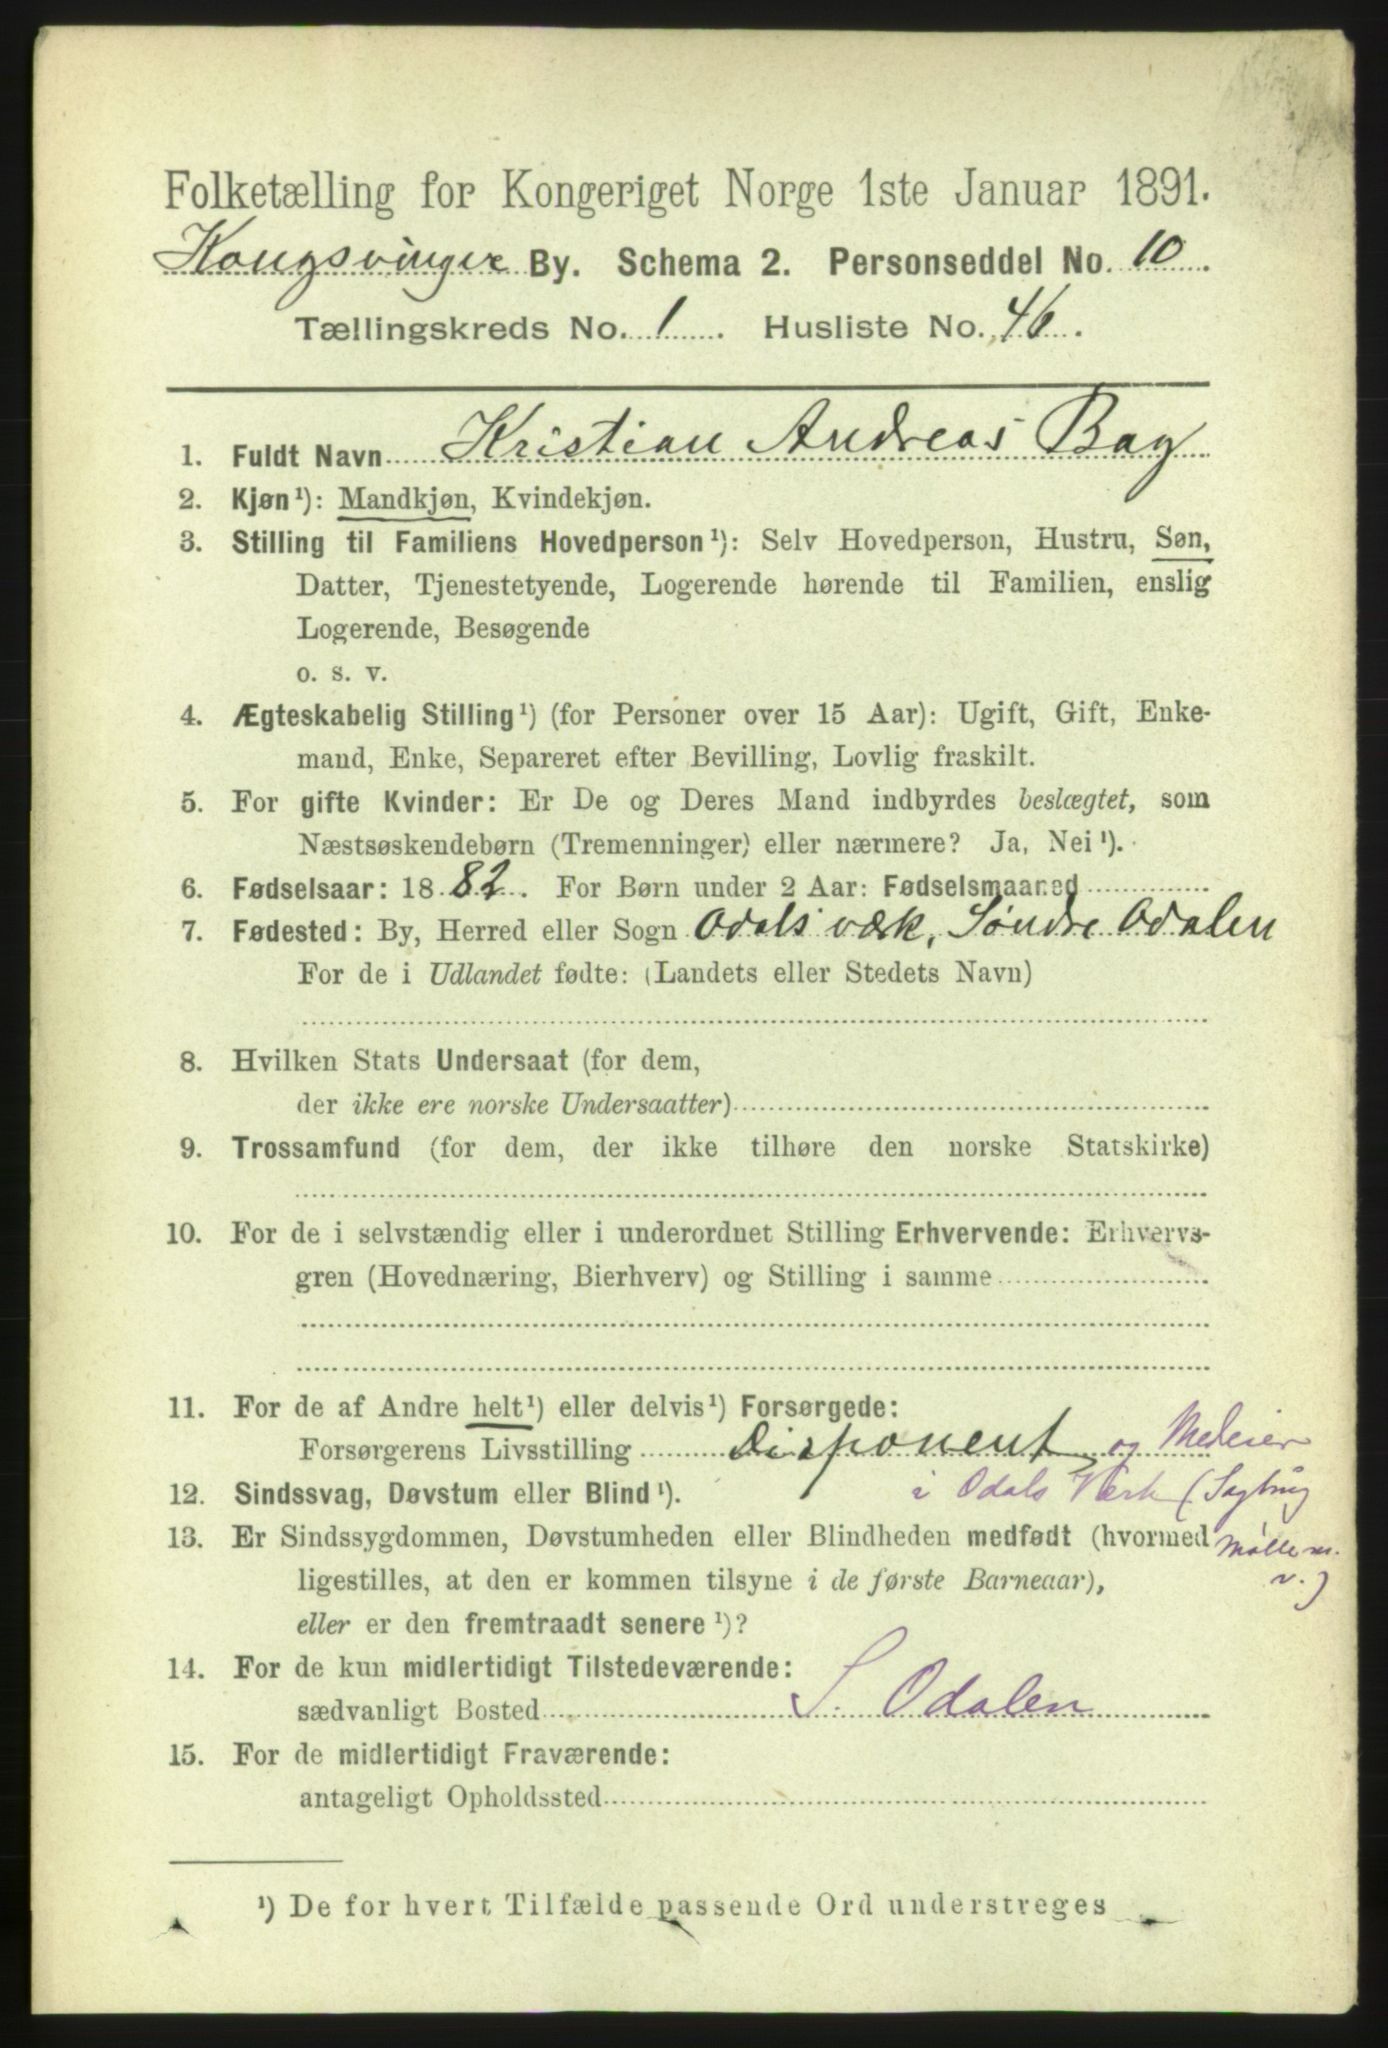 Folketælling for Kongeriget Norge 1ste Januar 1891.
Kongsvinger By. Schema 2. Personseddel No. 10
Tællingskreds No. 1 Husliste No. 46.
1. Fuldt Navn Kristian Andreas Bay
2. Kjøn¹): Mandkjøn, Kvindekjøn.
3. Stilling til Familiens Hovedperson¹): Selv Hovedperson, Hustru, Søn,
Datter, Tjenestetyende, Logerende hørende til Familien, enslig
Logerende, Besøgende
o. s. v.
4. Ægteskabelig Stilling¹) (for Personer over 15 Aar): Ugift, Gift, Enke-
mand, Enke, Separeret efter Bevilling, Lovlig fraskilt.
5. For gifte Kvinder: Er De og Deres Mand indbyrdes beslægtet, som
Næstsøskendebørn (Tremenninger) eller nærmere? Ja, Nei¹).
6. Fødselsaar: 1882. For Børn under 2 Aar: Fødselsmaaned
7. Fødested: By, Herred eller Sogn Odals værk, Søndre Odalen
For de i Udlandet fødte: (Landets eller Stedets Navn)
8. Hvilken Stats Undersaat (for dem,
der ikke ere norske Undersaatter)
9. Trossamfund (for dem, der ikke tilhøre den norske Statskirke)
10. For de i selvstændig eller i underordnet Stilling Erhvervende: Erhvervs-
gren (Hovednæring, Bierhverv) og Stilling i samme
11. For de af Andre helt¹) eller delvis¹) Forsørgede:
Forsørgerens Livsstilling Disponent og Medeier
i Odals Værk (Sagbrug
12. Sindssvag, Døvstum eller Blind¹).
13. Er Sindssygdommen, Døvstumheden eller Blindheden medfødt (hvormed
Mølle m.
v.)
ligestilles, at den er kommen tilsyne i de første Barneaar),
eller er den fremtraadt senere¹)?
14. For de kun midlertidigt Tilstedeværende:
sædvanligt Bosted S. Odalen
15. For de midlertidigt Fraværende:
antageligt Opholdssted
¹) De for hvert Tilfælde passende Ord understreges